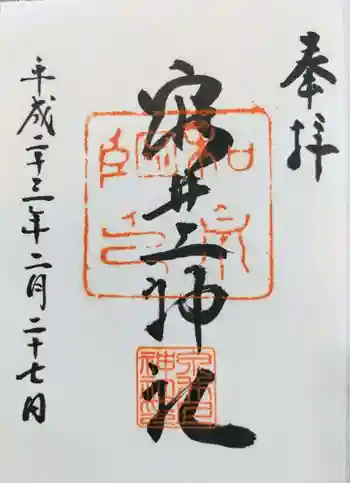 奉拝
泉井上神社
平成二十三年二月二十七日